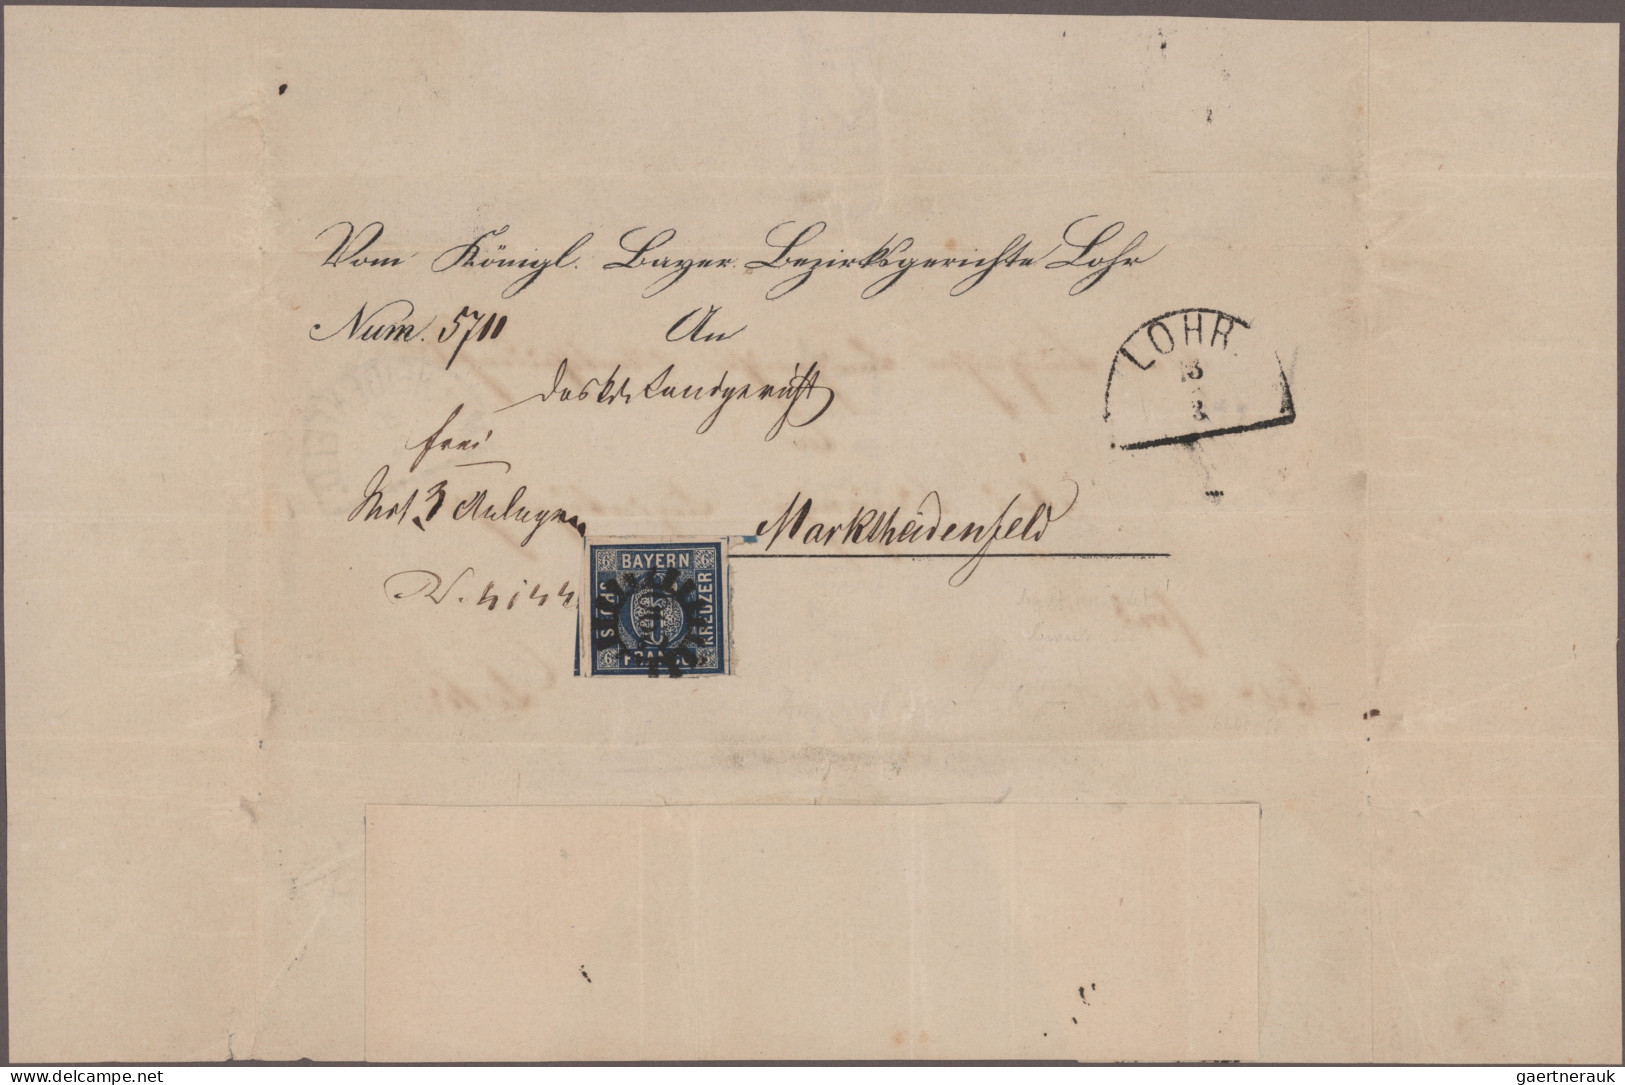 Vom Königl. Bayer. Bezirksgerichte Lohr
Num. 5711 An
LOHR.
3
3
das kgl. Landgericht
frei
Mit 3 Anlagen
Marktheidenfeld
BAYERN
SECHS
KREUZER
FRANCO
6 6
6 6
www.delcampe.net
gaertnerauk